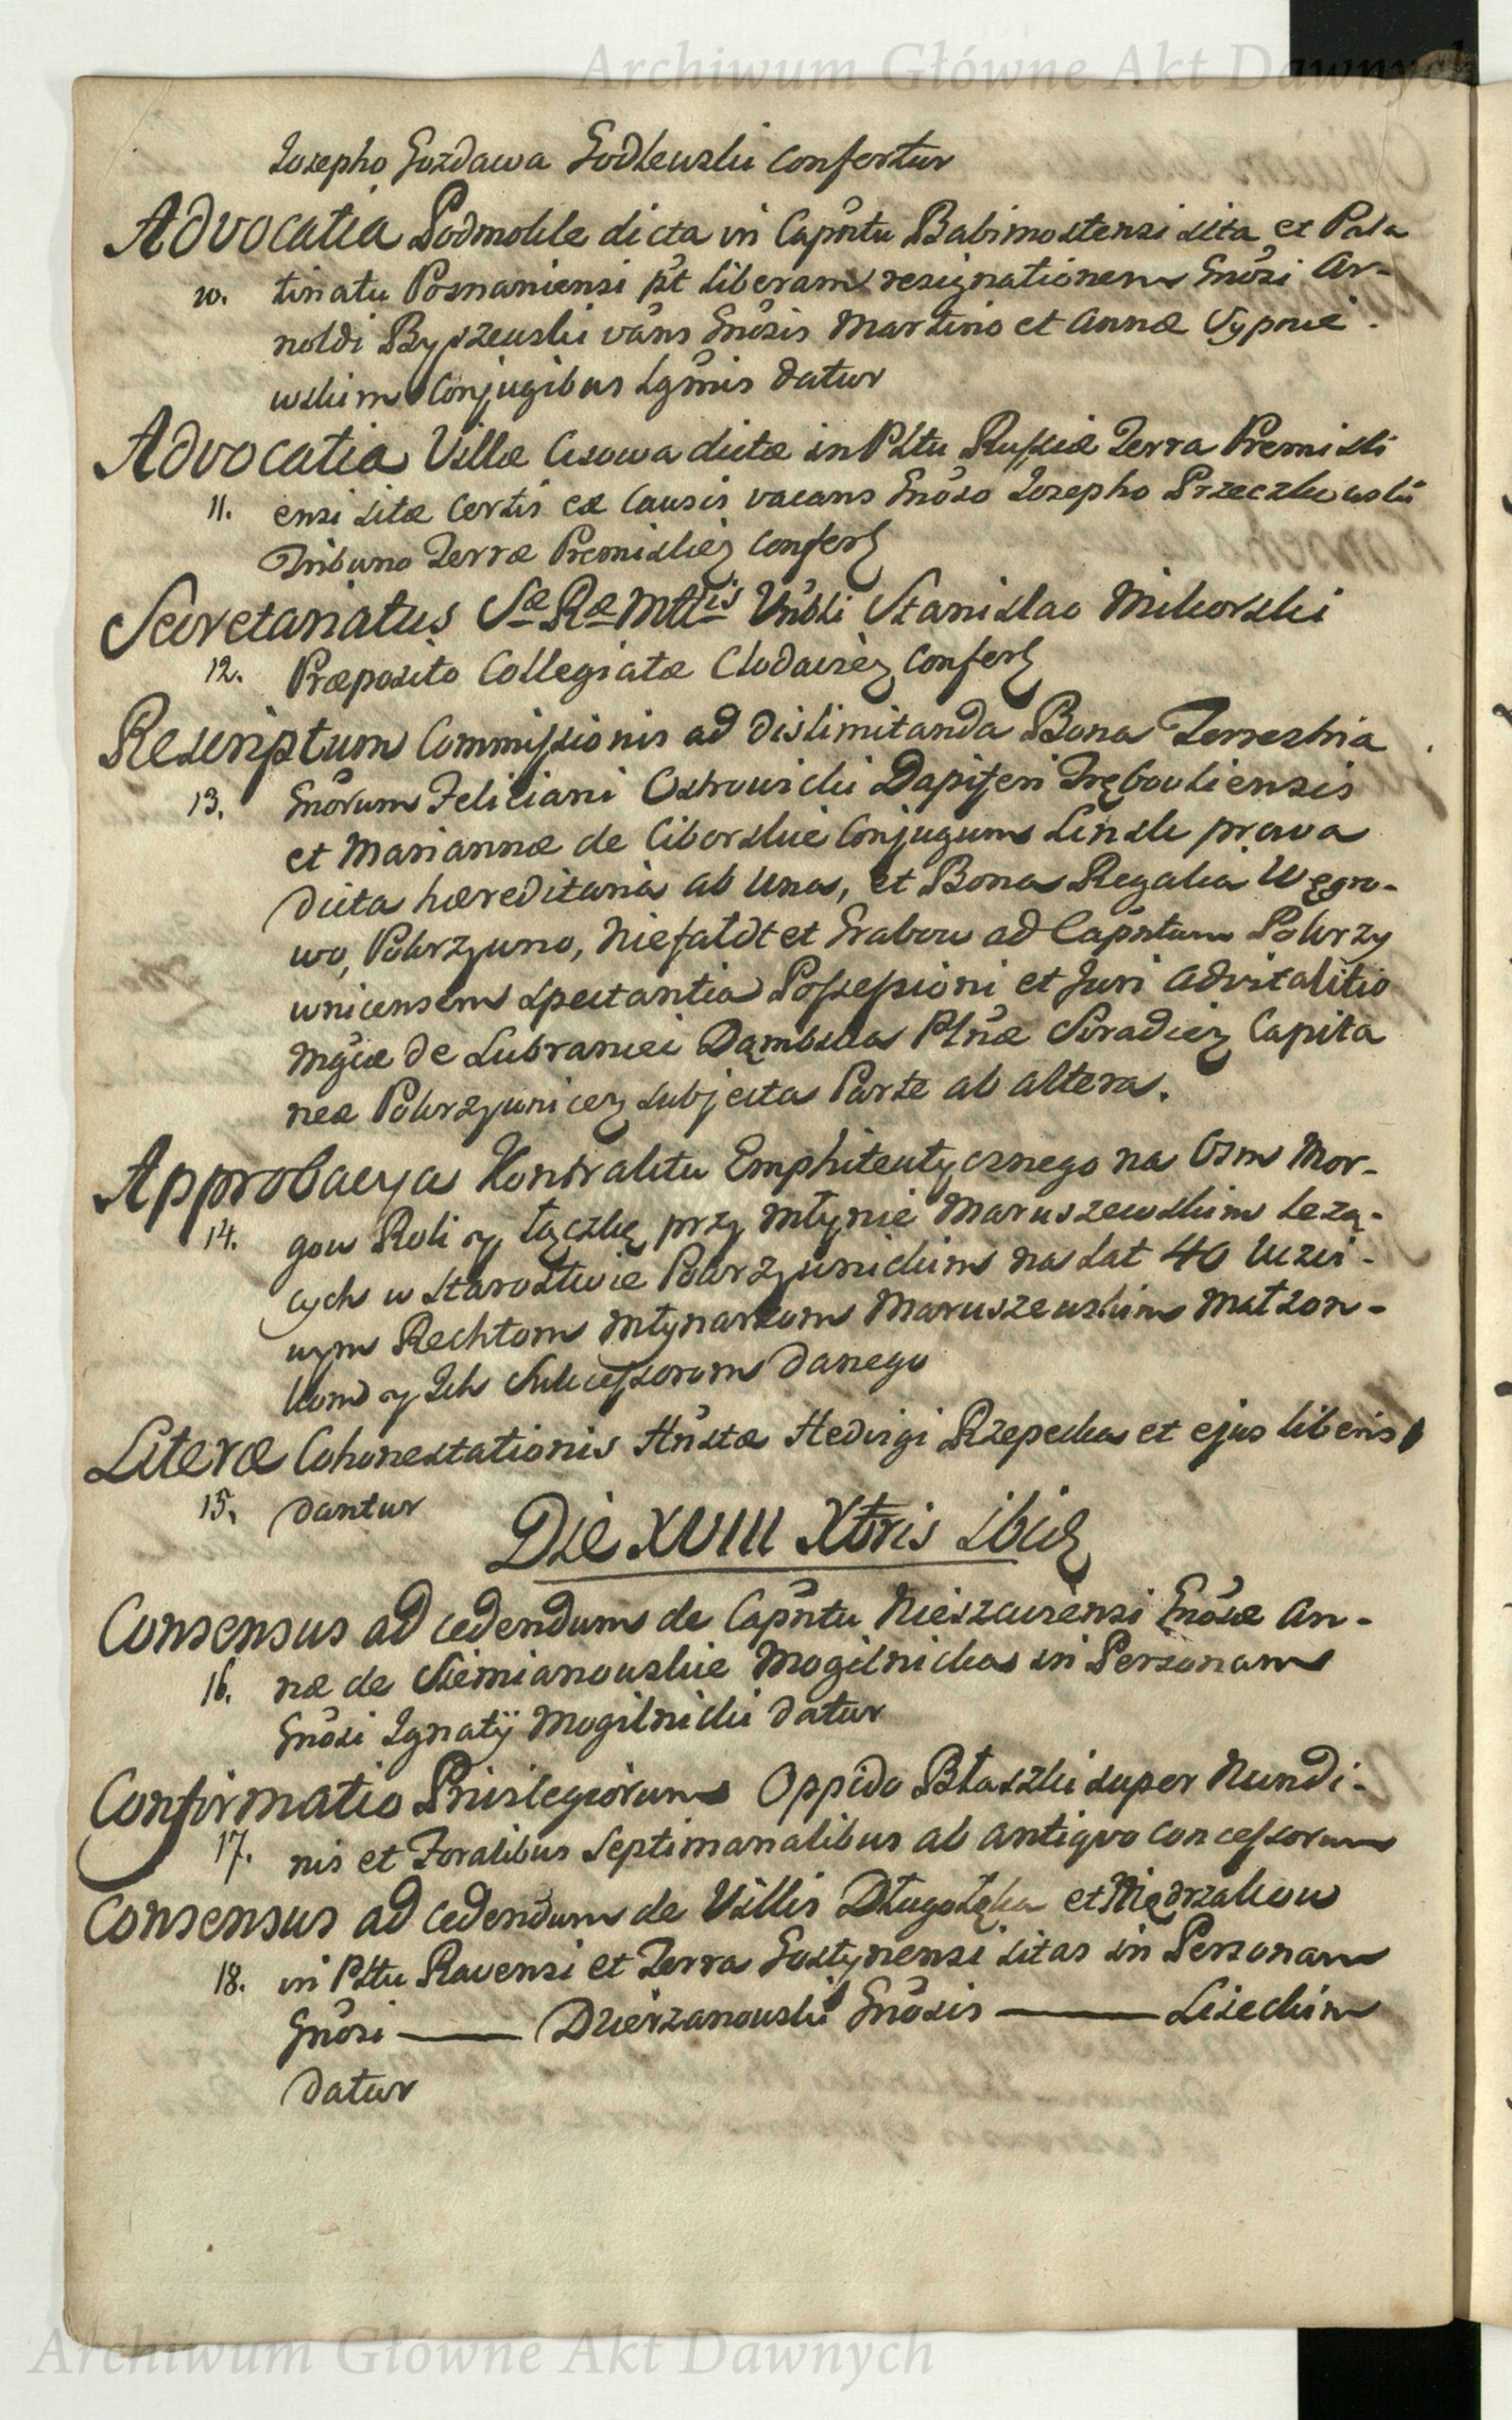 Archiwum Główne Akt Dawnych
Josepho Gozdawa Godlewski confertur
Advocatia Podmokle dicta in Capntu Babimostensi sita et Pala
10. tinatu Posnaniensi pt liberam resignationem Gnosi Ar-
noldi Byszewski vans Gnosis Martino et Annæ
wskim Conjugibus datur
Advocatia Villæ Cisowa dictæ in Pltu Russiæ Terra Premisli
11. ensi sitæ certis ex causis vacans Gnoso Josepho
Tribuno Terræ Premisliez confert
Secretariatus Sæ Ræ Mttis Vnbli Stanislao Mikorski
12. Præposito Collegiatæ Clodaviez confert
Rescriptum Commissionis ad dislimitanda Bona Terrestria
13. Gnorum Feliciani Ostrowicki Dapiferi Trębowliensis
et Mariannæ de Ciborskie Conjugum Linsk prawa
dicta hæreditaria ab una, et Bona Regalia Węgro-
wo, Pokrzywno, Niefałdt et Grabow ad Capntum Pokrzy
wnicensem spectantia Possessioni et Juri advitalitio
Mgcæ de Lubraniec Dąmbska Pltnæ Siradiez Capita
neæ Pokrzywnicez subjecta Parte ab altera.
Approbacya Kontraktu Emphiteutycznego na Osm Mor-
14. gow Roli y łączkę przy Młynie Maruszewskim leżą-
cych w Starostwie Pokrzywnickim na lat 40 Uczci-
wym Rechtom Młynarzom Maruszewskim Małżon-
kom y Ich Sukcessorom danego
Literæ Cohonestationis Hnstæ Hedvigi Rzepecka et ejus liberis
15. dantur
Die XVIII Xbris ibid
Consensus ad cedendum de Capntu Nieszaviensi Gnosæ An-
16. næ de Siemianowskie Mogilnicka in Personam
Gnosi Ignatij Mogilnicki datur
Confirmatio Privilegiorum Oppido Błaszki super Nundi-
17. nis et Foralibus Septimanalibus ab antiqvo concessorum
Consensus ad cedendum de Villis Długołęka et
18. in Pltu Ravensi et Terra Gostynensi sitas in Personam
Gnosi —— Dzierzanowski Gnosis —— Lisieckim
datur
Archiwum Główne Akt Dawnych